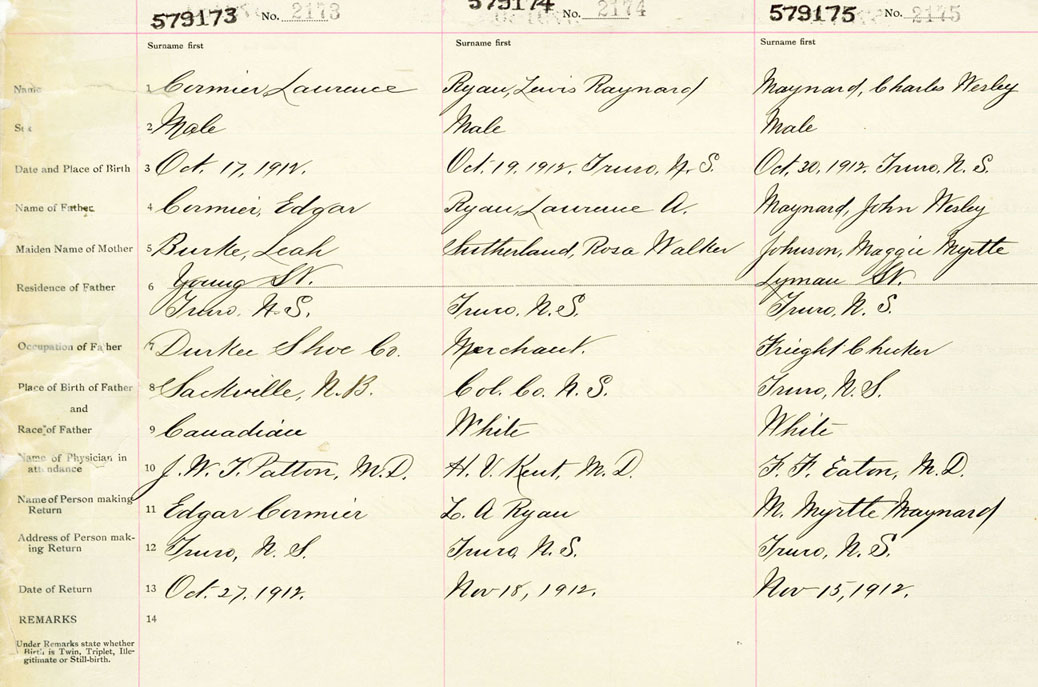 579173 No. 2173 579174 No. 2174 579175 No. 2175
Surname first Surname first Surname first
Name 1 Cormier, Laurence Ryan, Lewis Raynard Maynard, Charles Wesley
Sex 2 Male Male Male
Date and Place of Birth 3 Oct. 17, 1912. Oct. 19, 1912. Truro, N. S. Oct. 20, 1912. Truro, N. S.
Name of Father 4 Cormier, Edgar Ryan, Laurence A. Maynard, John Wesley
Maiden Name of Mother 5 Burke, Leah Sutherland, Rosa Walker Johnson, Maggie Myrtle
Young St. Lyman St.
Residence of Father 6 Truro, N. S. Truro, N. S. Truro, N. S.
Occupation of Father 7 Durkee Shoe Co. Merchant. Frieght Checker
Place of Birth of Father 8 Sackville, N. B. Col. Co. N. S. Truro, N. S.
and
Race of Father 9 Canadian White White
Name of Physician in
attendance 10 J. W. T. Patton, M. D. H. V. Kent, M. D. F. F. Eaton, M. D.
Name of Person making
Return 11 Edgar Cormier L. A Ryan M. Myrtle Maynard
Address of Person mak-
ing Return 12 Truro, N. S. Truro, N. S. Truro, N. S.
Date of Return 13 Oct. 27, 1912. Nov 18, 1912. Nov 15, 1912.
REMARKS 14
Under Remarks state whether
Birth is Twin, Triplet, Ille-
gitimate or Still-birth.